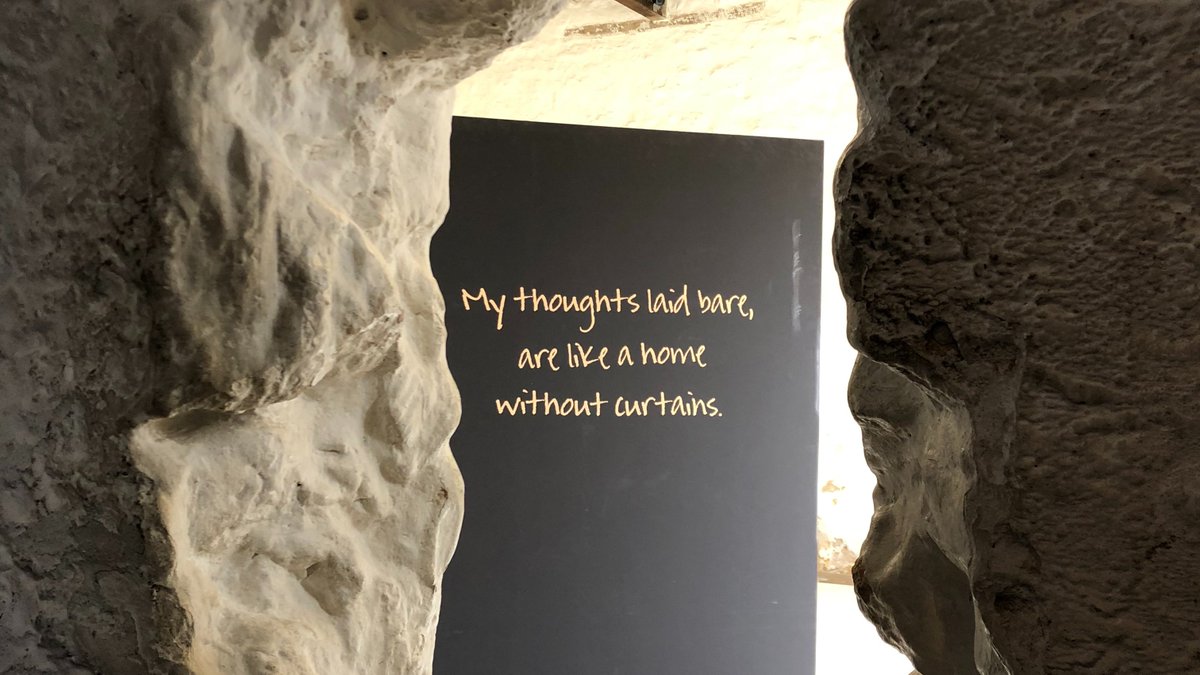 My thoughts laid bare,
are like a home
without curtains.